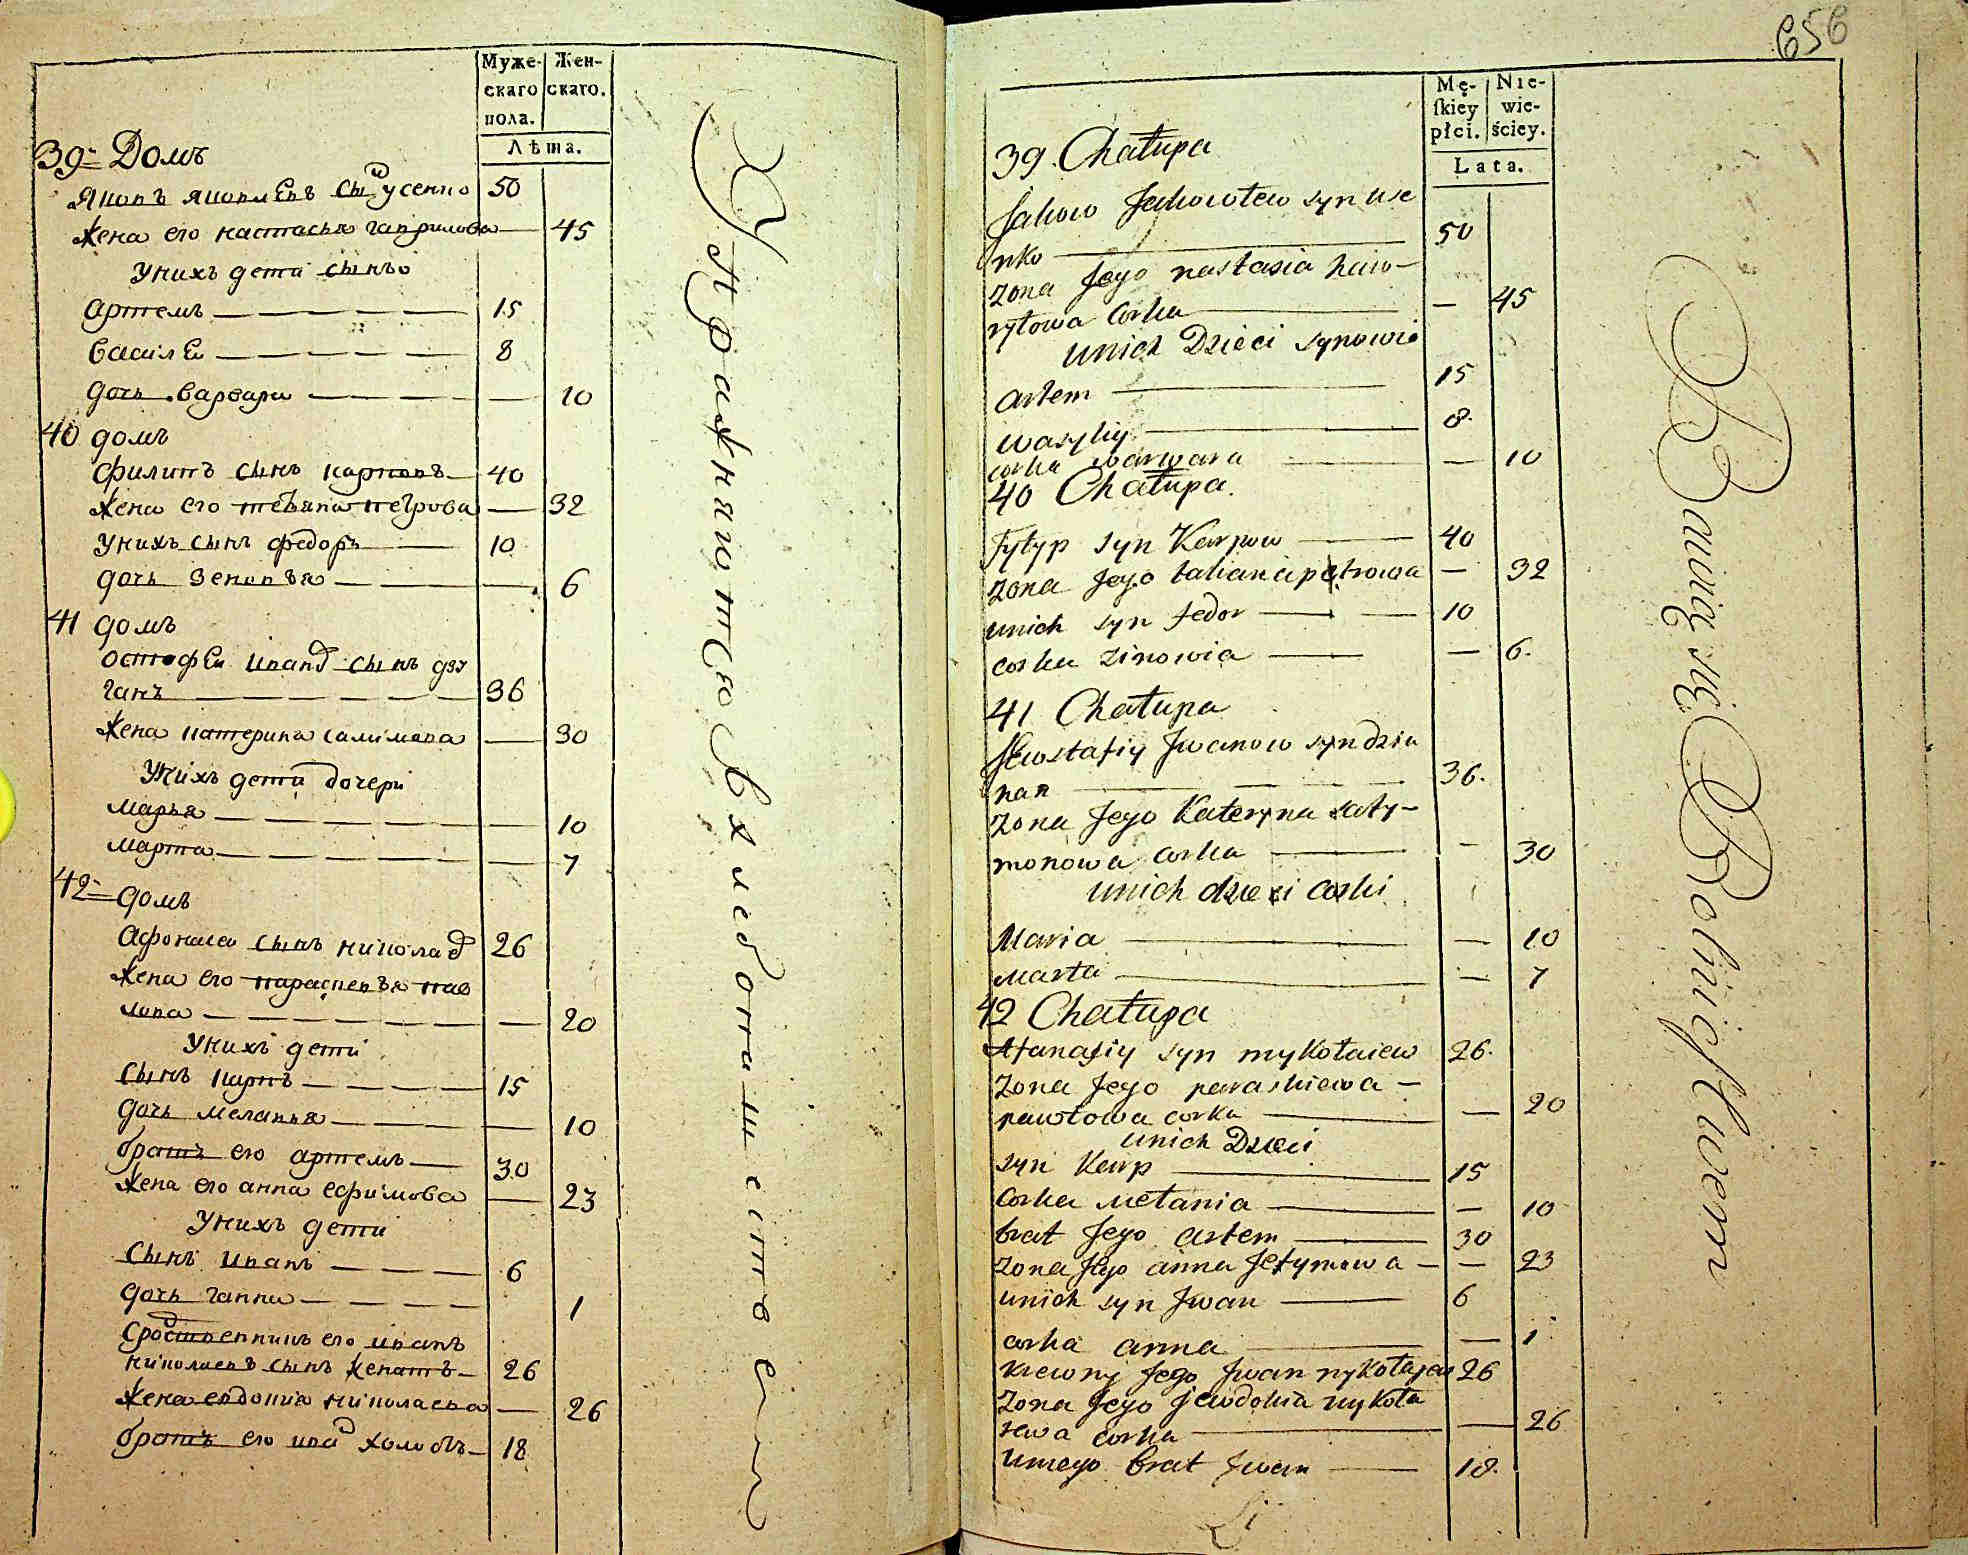 Муже-
скаго
пола.
Жен-
скаго.
Лѣта.
39 Домъ
Яковъ яковлевъ сынъ усенко 50
жена его настасья гаврилова — 45
Унихъ дети сыны
артемъ — 15
васили — 8
дочь варвара — 10
40 домъ
филипъ сынъ карповъ — 40
жена его татьяна петрова — 32
унихъ сынъ федоръ — 10
дочь зеновья — 6
41 домъ
остафеи иванов сынъ дзу
ганъ — 36
жена катерина салимона — 30
Унихъ дети дочери
марья — 10
марта — 7
42 домъ
афонасеи сынъ николаев 26
жена его парасковья пав
лова — 20
Унихъ дети
сынъ карпъ — 15
дочь меланья — 10
братъ его артемъ — 30
жена его анна ефимова — 23
Унихъ дети
сынъ иванъ — 6
дочь ганна — 1
сродственникъ его иванъ
николаевъ сынъ женатъ — 26
жена евдокия николаева — 26
братъ его иван холостъ — 18
Упражняются в хлебопашестве
656
Mę-
ſkiey
płci.
Nie-
wie-
ściey.
Lata.
39. Chałupa
Jakow Jakowlew syn use
nko — 50
żona Jego nastasia haw-
ryłowa corka — 45
unich Dzieci synowie
artem — 15
wasyliy — 8.
corka warwara — 10
40 Chałupa.
fylyp syn Karpow — 40
żona Jego tatiana petrowa — 32
unich syn fedor — 10
corka zinowia — 6.
41 Chałupa
Jewstafiy Jwanow syn dziu
han — 36.
żona Jego Kateryna sały-
monowa corka — 30
unich dzieci corki
Maria — 10
marta — 7
42 Chałupa
Afanasiy syn mykołaiew 26.
żona Jego paraskiewa —
pawłowa corka — 20
unich Dzieci
syn Karp — 15
corka Mełania — 10
brat Jego artem — 30
żona Jego anna Jefymowa — 23
unich syn Jwan — 6
corka anna — 1
krewny Jego Jwan mykołajew 26
żona Jego Jewdokia mykoła
iewa corka — 26
umego brat Jwan — 18.
Bawią się Rolnictwem